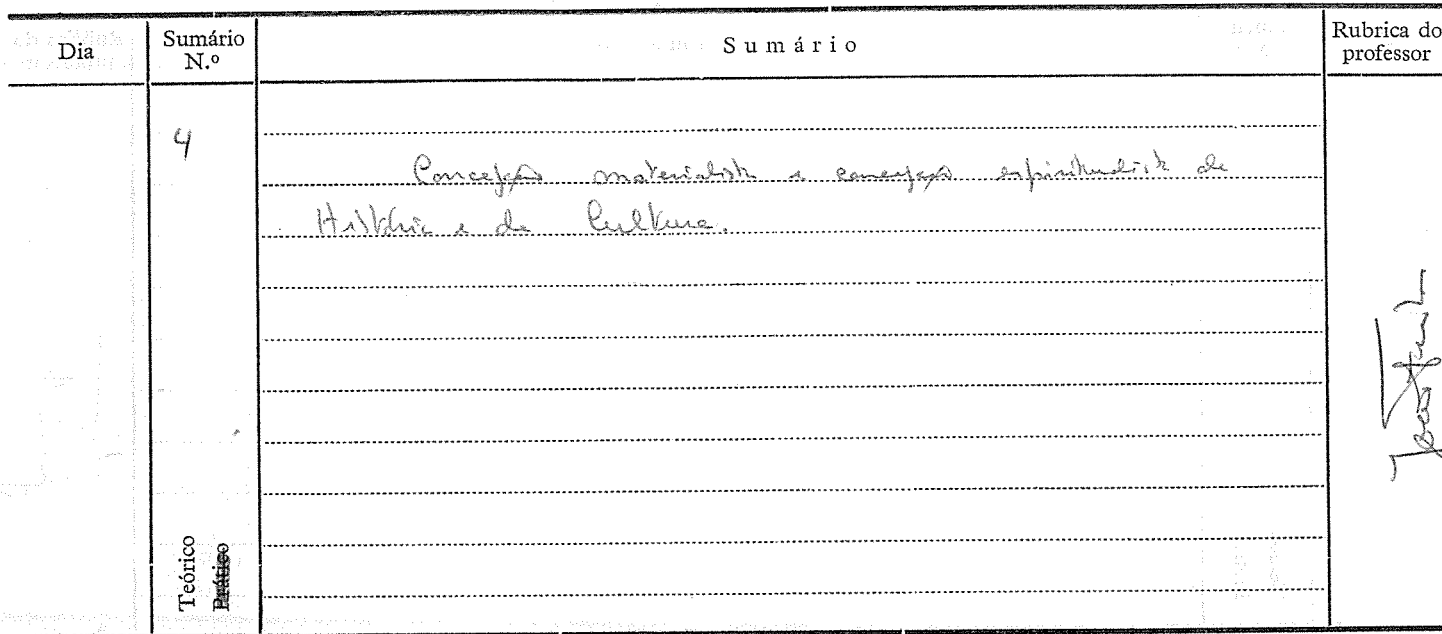 Dia
Sumário
N.º
Sumário
Rubrica do
professor
4
Concepção materialista e concepção espiritualista da
História e da Cultura.
Teórico
Prático